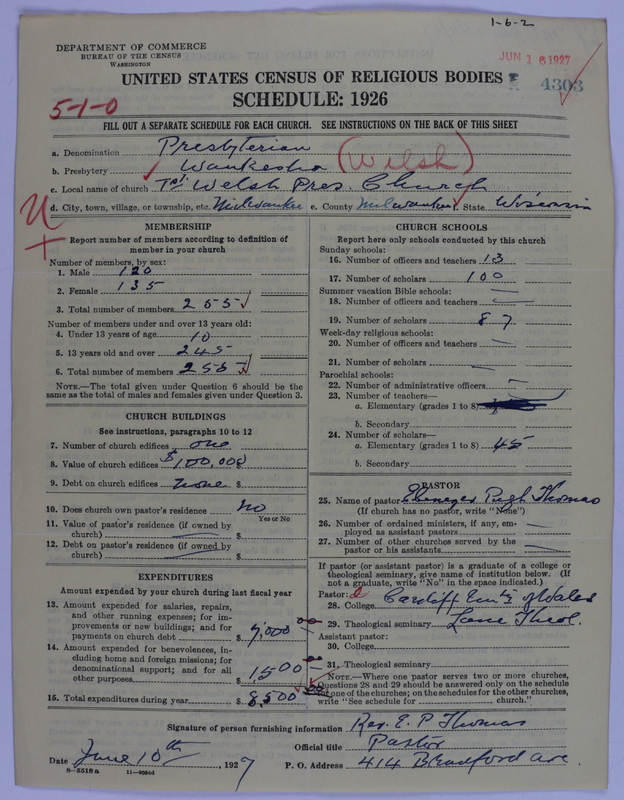 1-6-2
DEPARTMENT OF COMMERCE
BUREAU OF THE CENSUS
WASHINGTON
JUN 16 1927
4303
UNITED STATES CENSUS OF RELIGIOUS BODIES
SCHEDULE: 1926
5-1-0
FILL OUT A SEPARATE SCHEDULE FOR EACH CHURCH. SEE INSTRUCTIONS ON THE BACK OF THIS SHEET
a. Denomination Presbyterian
b. Presbytery Waukesha (Welsh)
c. Local name of church 1st Welsh Pres. Church
d. City, town, village, or township, etc. Milwaukee e. County Milwaukee f. State Wisconsin
MEMBERSHIP
Report number of members according to definition of
member in your church
Number of members, by sex:
1. Male 120
2. Female 135
3. Total number of members 255
Number of members under and over 13 years old:
4. Under 13 years of age 10
5. 13 years old and over 245
6. Total number of members 255
NOTE.—The total given under Question 6 should be the
same as the total of males and females given under Question 3.
CHURCH BUILDINGS
See instructions, paragraphs 10 to 12
7. Number of church edifices one
8. Value of church edifices $100,000
9. Debt on church edifices none $
10. Does church own pastor's residence? No
Yes or No
11. Value of pastor's residence (if owned by
church) $
12. Debt on pastor's residence (if owned by
church) $
EXPENDITURES
Amount expended by your church during last fiscal year
13. Amount expended for salaries, repairs,
and other running expenses; for im-
provements or new buildings; and for
payments on church debt $ 7,000
14. Amount expended for benevolences, in-
cluding home and foreign missions; for
denominational support; and for all
other purposes $ 1,500
15. Total expenditures during year $ 8,500
CHURCH SCHOOLS
Report here only schools conducted by this church
Sunday schools:
16. Number of officers and teachers 13
17. Number of scholars 100
Summer vacation Bible schools:
18. Number of officers and teachers
19. Number of scholars 87
Week-day religious schools:
20. Number of officers and teachers
21. Number of scholars
Parochial schools:
22. Number of administrative officers
23. Number of teachers—
a. Elementary (grades 1 to 8)
b. Secondary
24. Number of scholars—
a. Elementary (grades 1 to 8) 45
b. Secondary
PASTOR
25. Name of pastor Ebenezer Pugh Thomas
(If church has no pastor, write "None")
26. Number of ordained ministers, if any, em-
ployed as assistant pastors
27. Number of other churches served by the
pastor or his assistants
If pastor (or assistant pastor) is a graduate of a college or
theological seminary, give name of institution below. (If
not a graduate, write "No" in the space indicated.)
Pastor:
28. College Cardiff Univ. of Wales
29. Theological seminary Lane Theol.
Assistant pastor:
30. College
31. Theological seminary
NOTE.—Where one pastor serves two or more churches,
Questions 28 and 29 should be answered only on the schedule
for one of the churches; on the schedules for the other churches,
write "See schedule for church."
Signature of person furnishing information Rev. E. P Thomas
Official title Pastor
Date June 10th, 1927 P. O. Address 414 Bradford Ave.
8-5518a 11-9034d